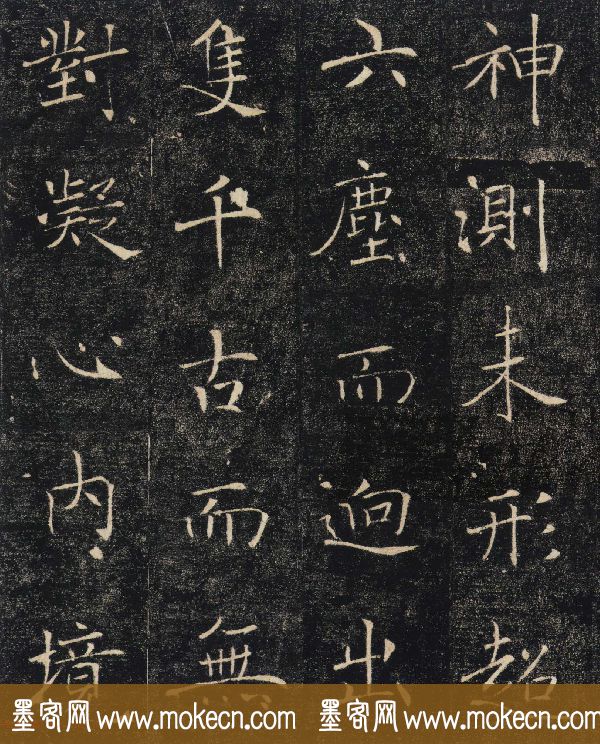 神測未形超
六塵而迥出
隻千古而無
對凝心內境
墨客网 www.mokecn.com 墨客网 www.mokecn.com